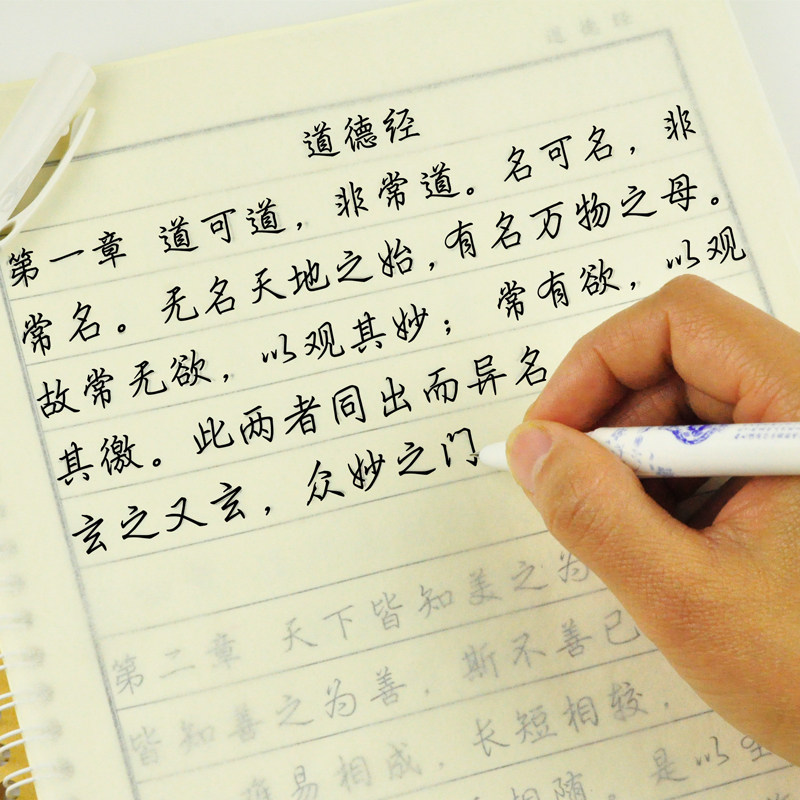 道德经
道德经
第一章 道可道，非常道。名可名，非
常名。无名天地之始，有名万物之母。
故常无欲，以观其妙；常有欲，以观
其徼。此两者同出而异名
玄之又玄，众妙之门
第二章 天下皆知美之为
皆知善之为善，斯不善已
难易相成，长短相较，
相随。是以圣